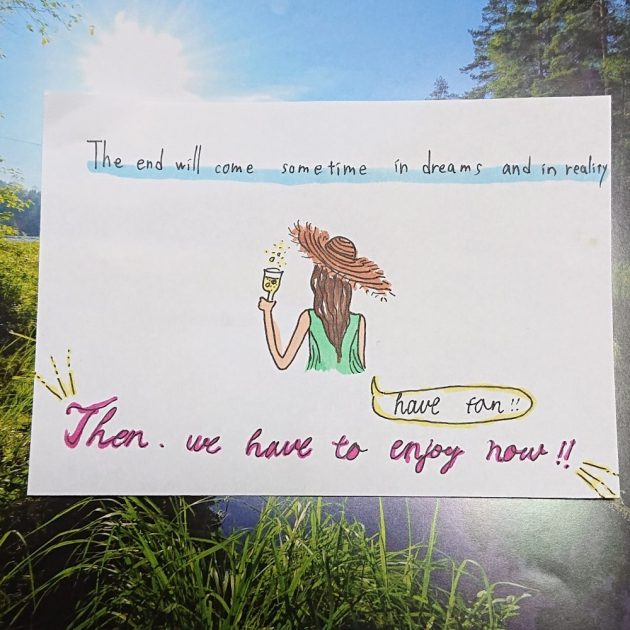 The end will come sometime in dreams and in reality
have fan!!
Then. we have to enjoy now!!